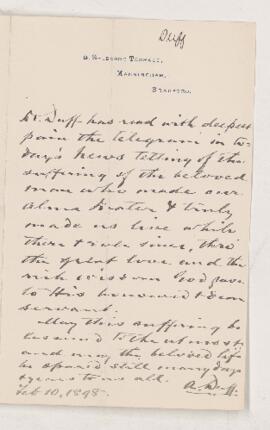 Duff
Manningham,
Bradford.
Dr. Duff has read with deepest
pain the telegram in to-
day's News telling of the
suffering of the beloved
man who made our
Alma Mater & truly
made us live while
there & ever since, thro'
the great love and the
rich wisdom God gave
to His honoured & dear
servant.
May this suffering be
lessened to the utmost
and may the beloved life
be spared still many days
& years to us all.
A. Duff.
Feb 10, 1898.